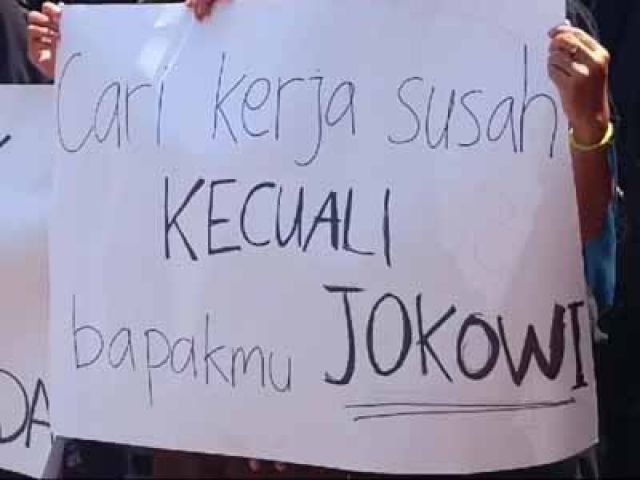 Cari kerja susah
KECUALI
bapakmu JOKOWI
DA